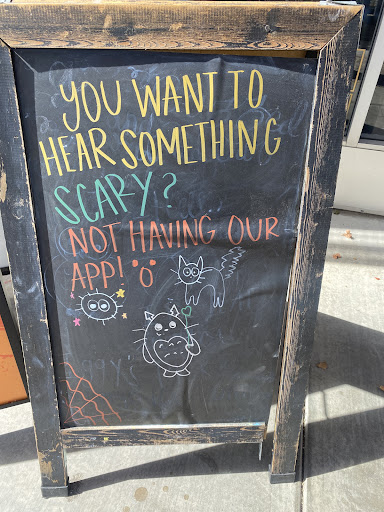 YOU WANT TO
HEAR SOMETHING
SCARY?
NOT HAVING OUR
APP!